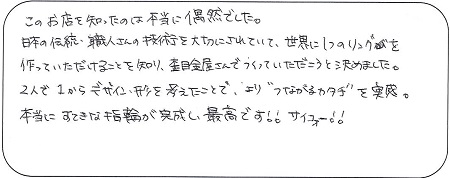 このお店を知ったのは本当に偶然でした。
日本の伝統・職人さんの技術を大切にされていて、世界に1つのリングを
作っていただけることを知り、杢目金屋さんでつくっていただこうと決めました。
2人で1からデザイン・形を考えたことで、より“つながるカタチ”を実感。
本当にすてきな指輪が完成し、最高です!! サイコォー!!